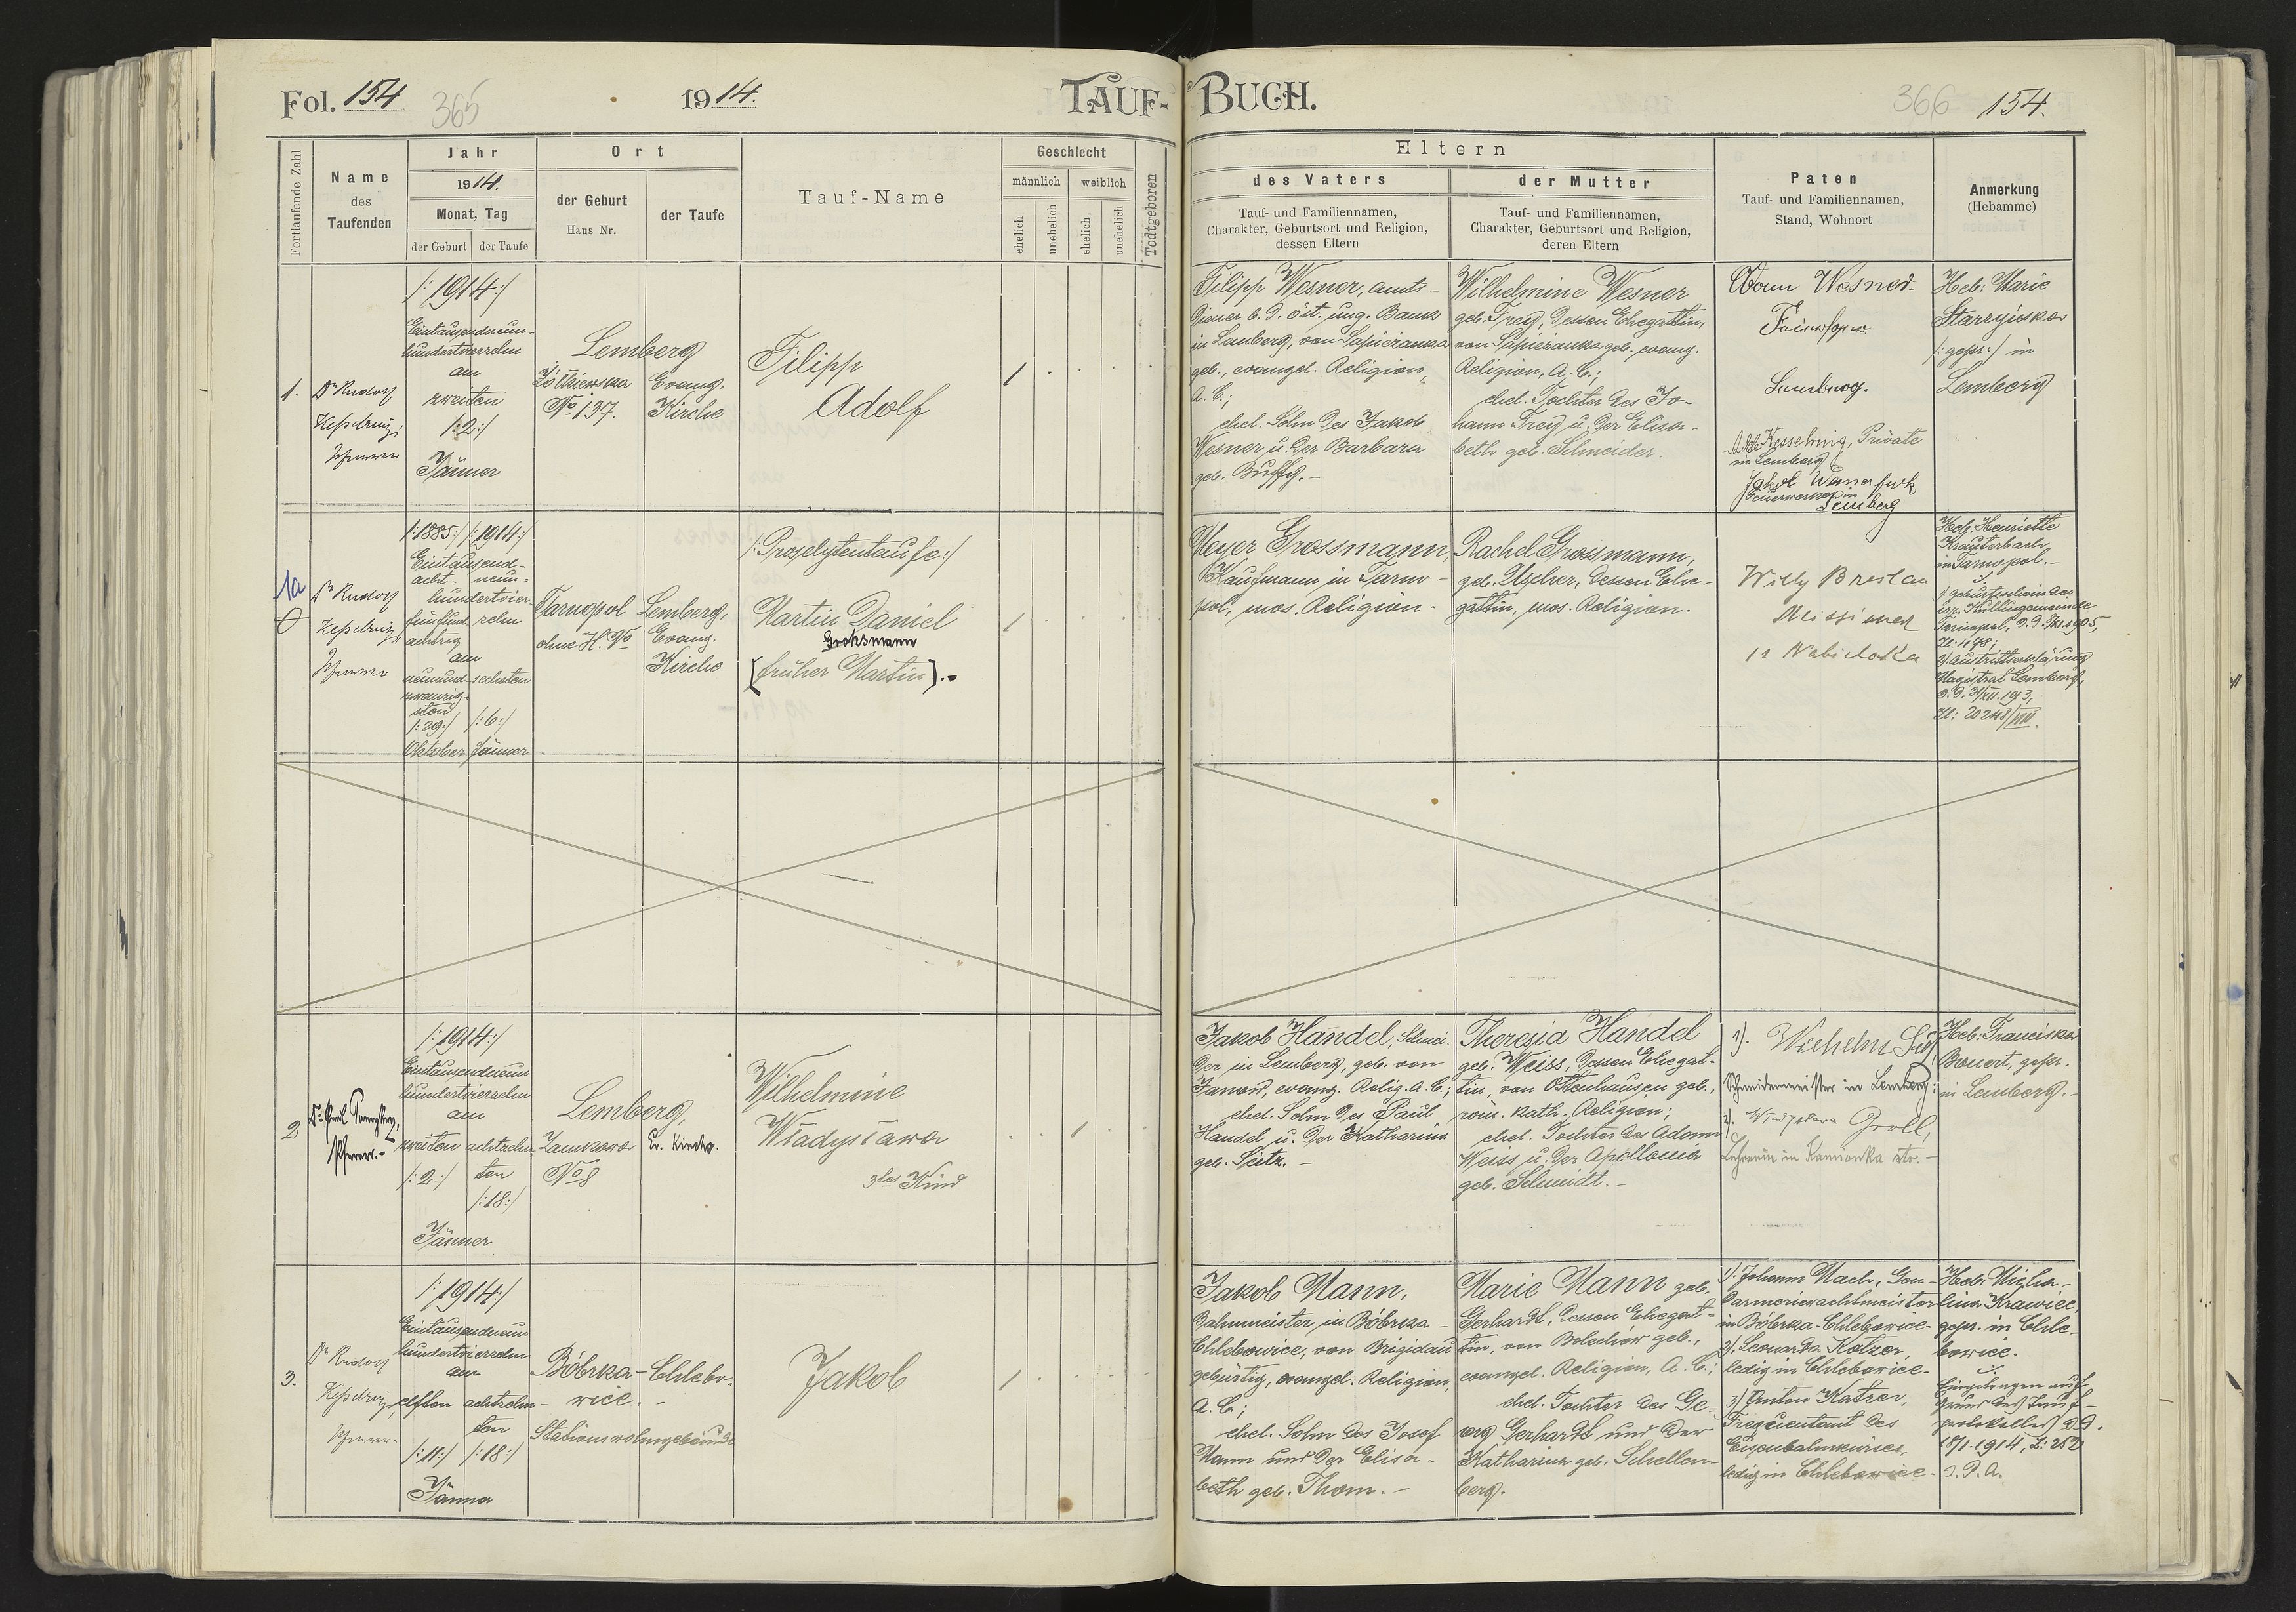 Fol. 154
365
1914.
TAUF-
BUCH.
366
154.
Fortlaufende Zahl
Name
des
Taufenden
Jahr
1914.
Monat, Tag
der Geburt
der Taufe
Ort
der Geburt
Haus Nr.
der Taufe
Tauf-Name
Geschlecht
männlich
weiblich
ehelich
unehelich
ehelich
unehelich
Todtgeboren
Eltern
des Vaters
Tauf- und Familiennamen,
Charakter, Geburtsort und Religion,
dessen Eltern
der Mutter
Tauf- und Familiennamen,
Charakter, Geburtsort und Religion,
deren Eltern
Paten
Tauf- und Familiennamen,
Stand, Wohnort
Anmerkung
(Hebamme)
1.
Dr Rudolf
Kesselring,
Pfarrer
/:1914:/
Eintausendneun-
hundertvierzehn
am
zweiten
/:2:/
Jänner
Lemberg
Żółkiewska
No 137.
Evang.
Kirche
Filipp
Adolf
1
Filipp Wesner, amts-
diener b. d. öst. ung. Bank
in Lemberg, von Sapieżanka
geb., evangel. Religion,
A.C.;
ehel. Sohn des Jakob
Wesner u. der Barbara
geb. Buffy.-
Wilhelmine Wesner
geb. Frey, dessen Ehegattin,
von Sapieżanka geb. evang.
Religion, A.C.;
ehel. Tochter des Jo-
hann Frey u. der Elisa-
beth geb. Schneider.
Wesner
Lemberg.
Kesselring, Private
in Lemberg
Jakob Wesner
Feuerwerker in
Lemberg
Heb: Marie
Starzyńska
/:gepr:/ in
Lemberg
1a
Dr Rudolf
Kesselring
Pfarrer
/:1885:/ /:1914:/
Eintausend-
acht- neun-
hundertvier-
fünfund zehn
achtzig
am
neunund- sechsten
zwanzig-
sten
/:29:/ /:6:/
Oktober Jänner
Tarnopol
ohne H. No
Lemberg,
Evang.
Kirche
/:Proselytentaufe:/
Martin Daniel
Grossmann
[früher Martin].
1
Meyer Grossmann,
Kaufmann in Tarno-
pol, mos. Religion.
Rachel Grossmann,
geb. Ascher, dessen Ehe-
gattin, mos. Religion.
Willy Breslau
Missionar
Heb. Henriette
Krauterbach
in Tarnopol.-
1. Geburtsschein der
isr. Kultusgemeinde
Tarnopol, d. d.
Zl: 478;
2) Austrittserklärung
Magistrat Lemberg,
d. d. 31/XII. 1913,
Zl: 20248/VIII.
2
Pfarrer.-
/:1914:/
Eintausendneun
hundertvierzehn
am
zweiten achtzehn
/:2:/ ten
/:18:/
Jänner
Lemberg,
Zamkowa
No 8
Ev. Kirche.
Wilhelmine
Władysława
3tes Kind
1
Jakob Handel, Schnei-
der in Lemberg, geb. von
Janow, evang. Relig. A.C.;
ehel. Sohn des Paul
Handel u. der Katharina
geb. Seitz.-
Theresia Handel
geb. Weiss, dessen Ehegat-
tin, von Ottenhausen geb.,
röm. kath. Religion;
ehel. Tochter des Adam
Weiss u. der Apollonia
geb. Schmidt.-
1). Wilhelm
Schneidermeister in Lemberg;
2. Władysława Groll,
Lehrerin in Kamionka str.-
Heb: Franciska
Bonert, gepr.
in Lemberg.-
3.
Dr Rudolf
Kesselring,
Pfarrer.
/:1914:/
Eintausendneun
hundertvierzehn
am
elften achtzehn-
ten
/:11:/ /:18:/
Jänner
Bóbrka-Chlebo-
wice.-
Stationswohngebäude
Jakob
1
Jakob Mann,
Bahnmeister in Bóbrka-
Chlebowice, von Brigidau
gebürtig, evangel. Religion,
A.C.;
ehel. Sohn des Josef
Mann und der Elisa-
beth geb. Thom.-
Marie Mann geb.
Gerhardt, dessen Ehegat-
tin, von Bolechów geb.,
evangel. Religion, A.C.;
ehel. Tochter des Ge-
org Gerhardt und der
Katharina geb. Schellen-
berg.
1). Johann Mach, Gen-
darmeriewachtmeister
in Bóbrka-Chlebowice-
2). Leonarda Kotzer,
ledig in Chlebowice-
3) Anton Katzer,
Frequentant des
Eisenbahnkurses,
ledig in Chlebowice-
Heb: Micha-
lina Krawiec,
gepr. in Chle-
bowice.
Eingetragen auf
Grund des Tauf-
protokolles d.d.
18/1.1914, Z: 252
d. P. A.